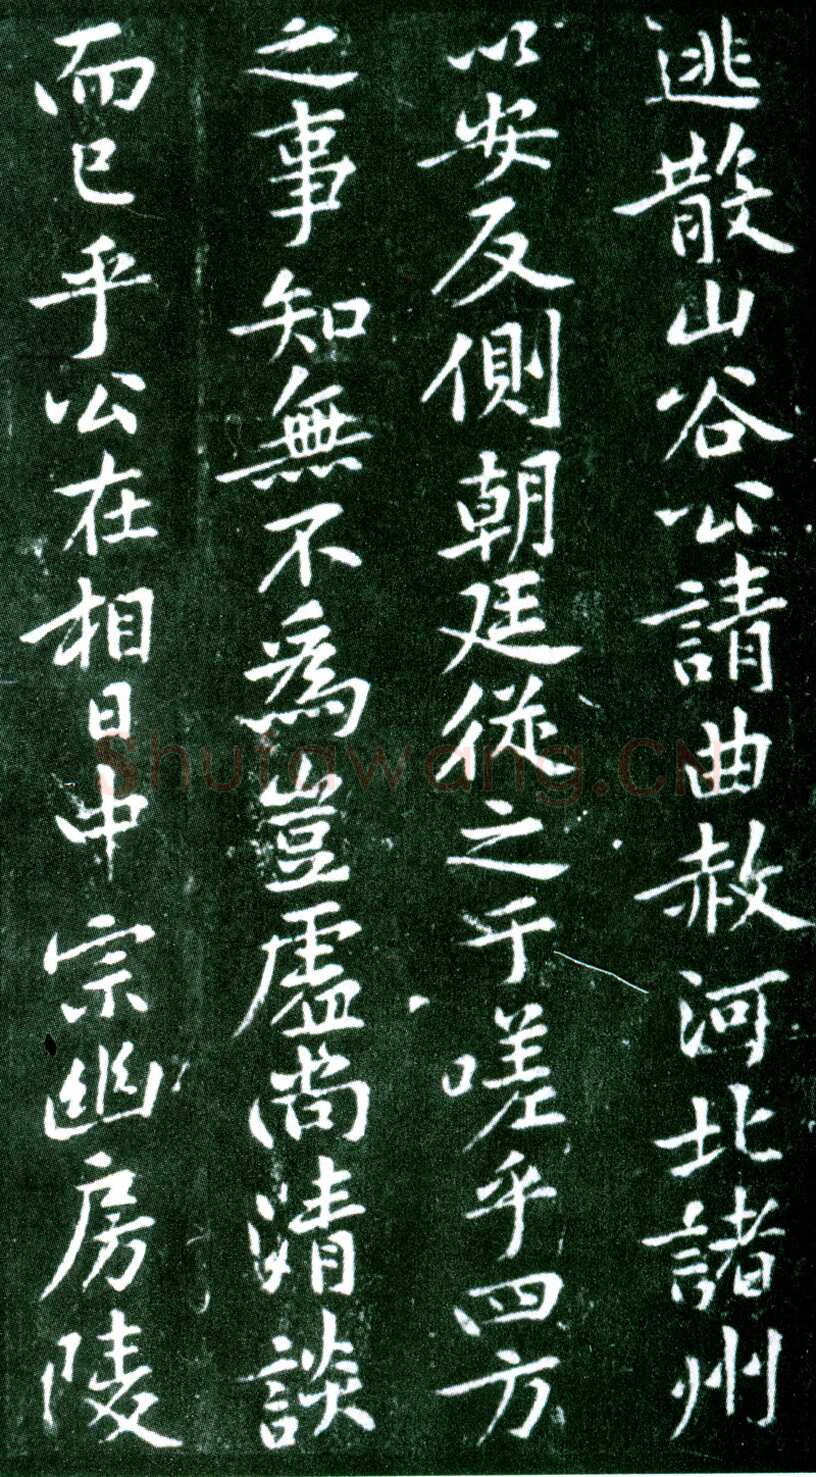 逃散山谷公請曲赦河北諸州
以安反側朝廷從之于嗟乎四方
之事知無不為豈虛尚清談
而已乎公在相日中宗幽房陵
Shufawang.CN